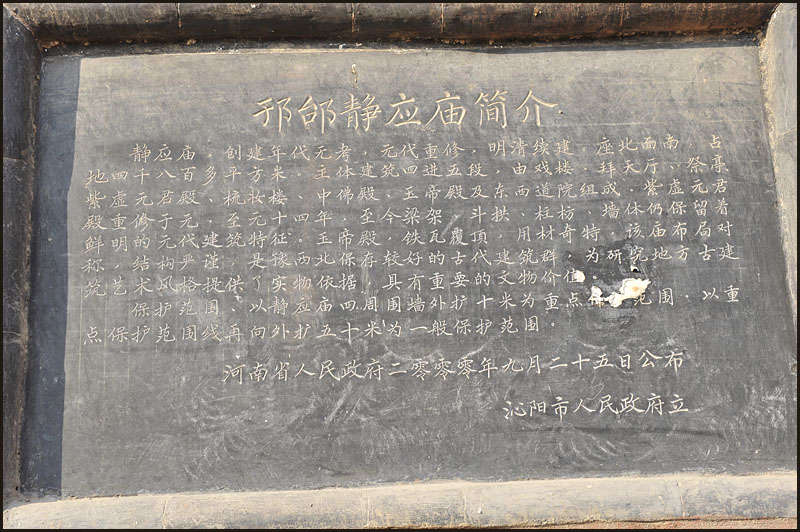 邘邰静应庙简介
静应庙，创建年代无考，元代重修，明清续建。座北面南，占
地四千八百多平方米。主体建筑四进五段，由戏楼、拜天厅、祭亭
紫虚元君殿、梳妆楼、中佛殿、玉帝殿及东西道院组成。紫虚元君
殿重修于元至元十四年，至今梁架、斗拱、柱枋、墙体仍保留着
鲜明的元代建筑特征。玉帝殿，铁瓦覆顶，用材奇特，该庙布局对
称，结构严谨，是豫西北保存较好的古代建筑群，为研究地方古建
筑艺术风格提供了实物依据，具有重要的文物价值。
保护范围、以静应庙四周围墙外扩十米为重点保范围，以重
点保护范围线再向外扩五十米为一般保护范围。
河南省人民政府二零零零年九月二十五日公布
沁阳市人民政府立